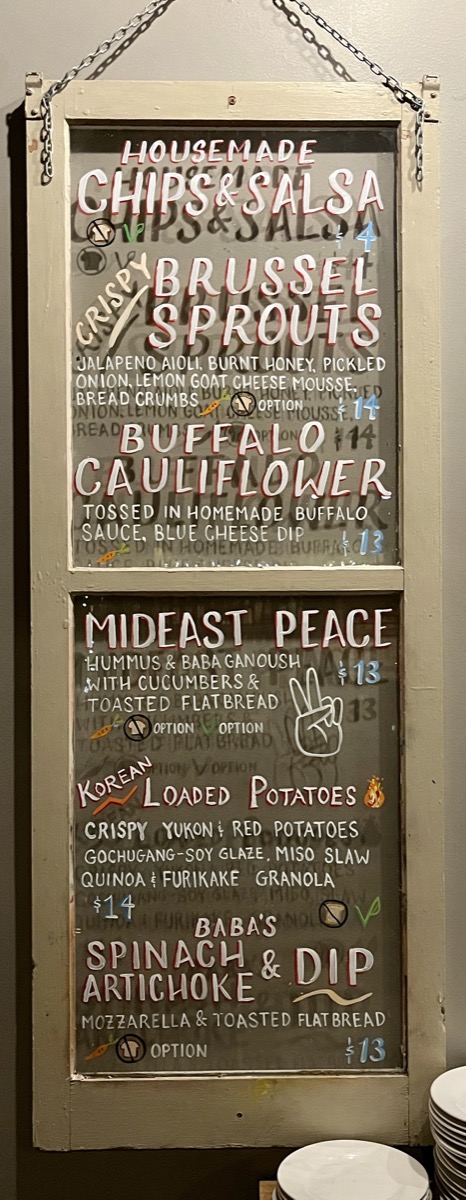 HOUSEMADE
CHIPS & SALSA
V
$4
CRISPY
BRUSSEL
SPROUTS
JALAPENO AIOLI, BURNT HONEY, PICKLED
ONION, LEMON GOAT CHEESE MOUSSE,
BREAD CRUMBS OPTION $14
BUFFALO
CAULIFLOWER
TOSSED IN HOMEMADE BUFFALO
SAUCE, BLUE CHEESE DIP $13
MIDEAST PEACE
HUMMUS & BABA GANOUSH $13
WITH CUCUMBERS &
TOASTED FLATBREAD
OPTION V OPTION
KOREAN LOADED POTATOES
CRISPY YUKON & RED POTATOES
GOCHUGANG-SOY GLAZE, MISO SLAW
QUINOA & FURIKAKE GRANOLA
$14 V
BABA'S
SPINACH & DIP
ARTICHOKE
MOZZARELLA & TOASTED FLATBREAD
OPTION $13